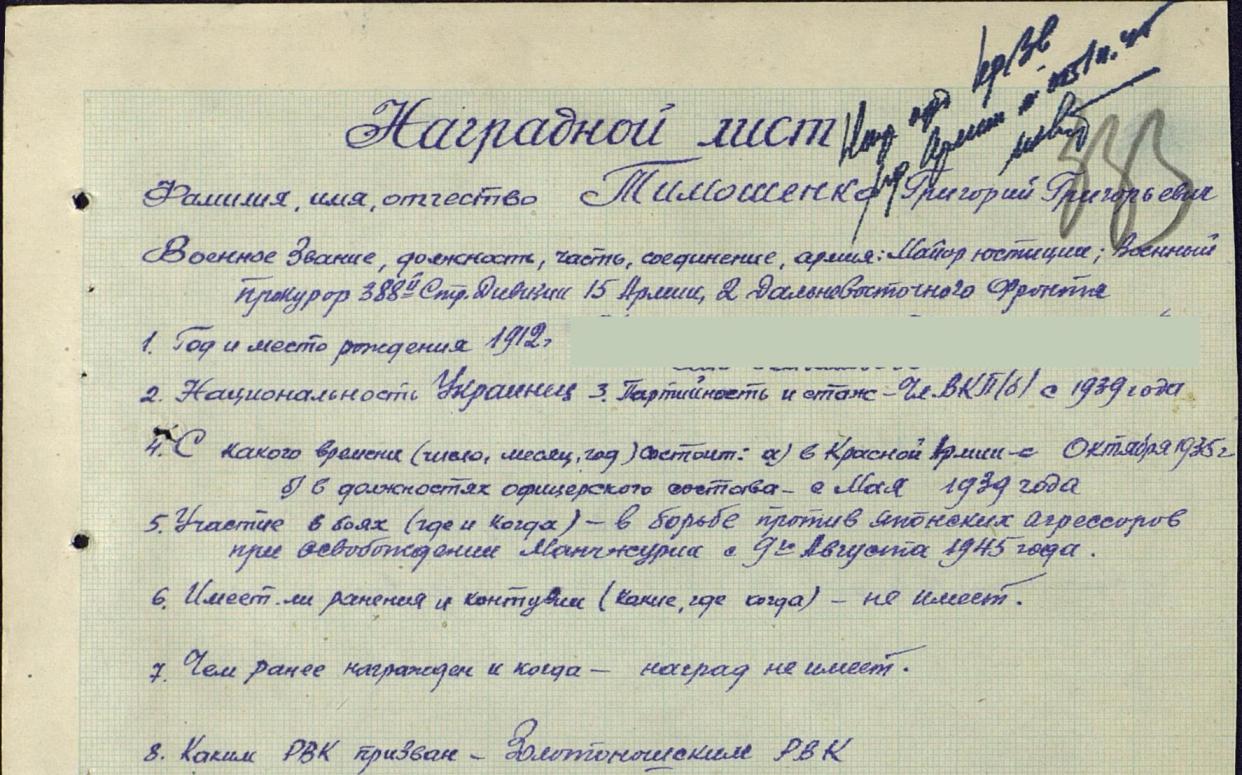 Наградной лист
Фамилия, имя, отчество Тимошенко Григорий Григорьевич
Военное Звание, должность, часть, соединение, армия: Майор юстиции; Военный
прокурор 388й Стр. Дивизии 15 Армии, 2 Дальневосточного Фронта
1. Год и место рождения 1912г
2. Национальность Украинец 3. Партийность и стаж – Чл. ВКП(б) с 1939 года
4. С какого времени (число, месяц, год) состоит: а) в Красной Армии – с Октября 1935г
б) в должностях офицерского состава – с Мая 1939 года
5. Участие в боях (где и когда) – в борьбе против японских агрессоров
при освобождении Манчжурии с 9го Августа 1945 года.
6. Имеет ли ранения и контузии (какие, где когда) – не имеет.
7. Чем ранее награжден и когда – наград не имеет.
8. Каким РВК призван – Золотоношским РВК